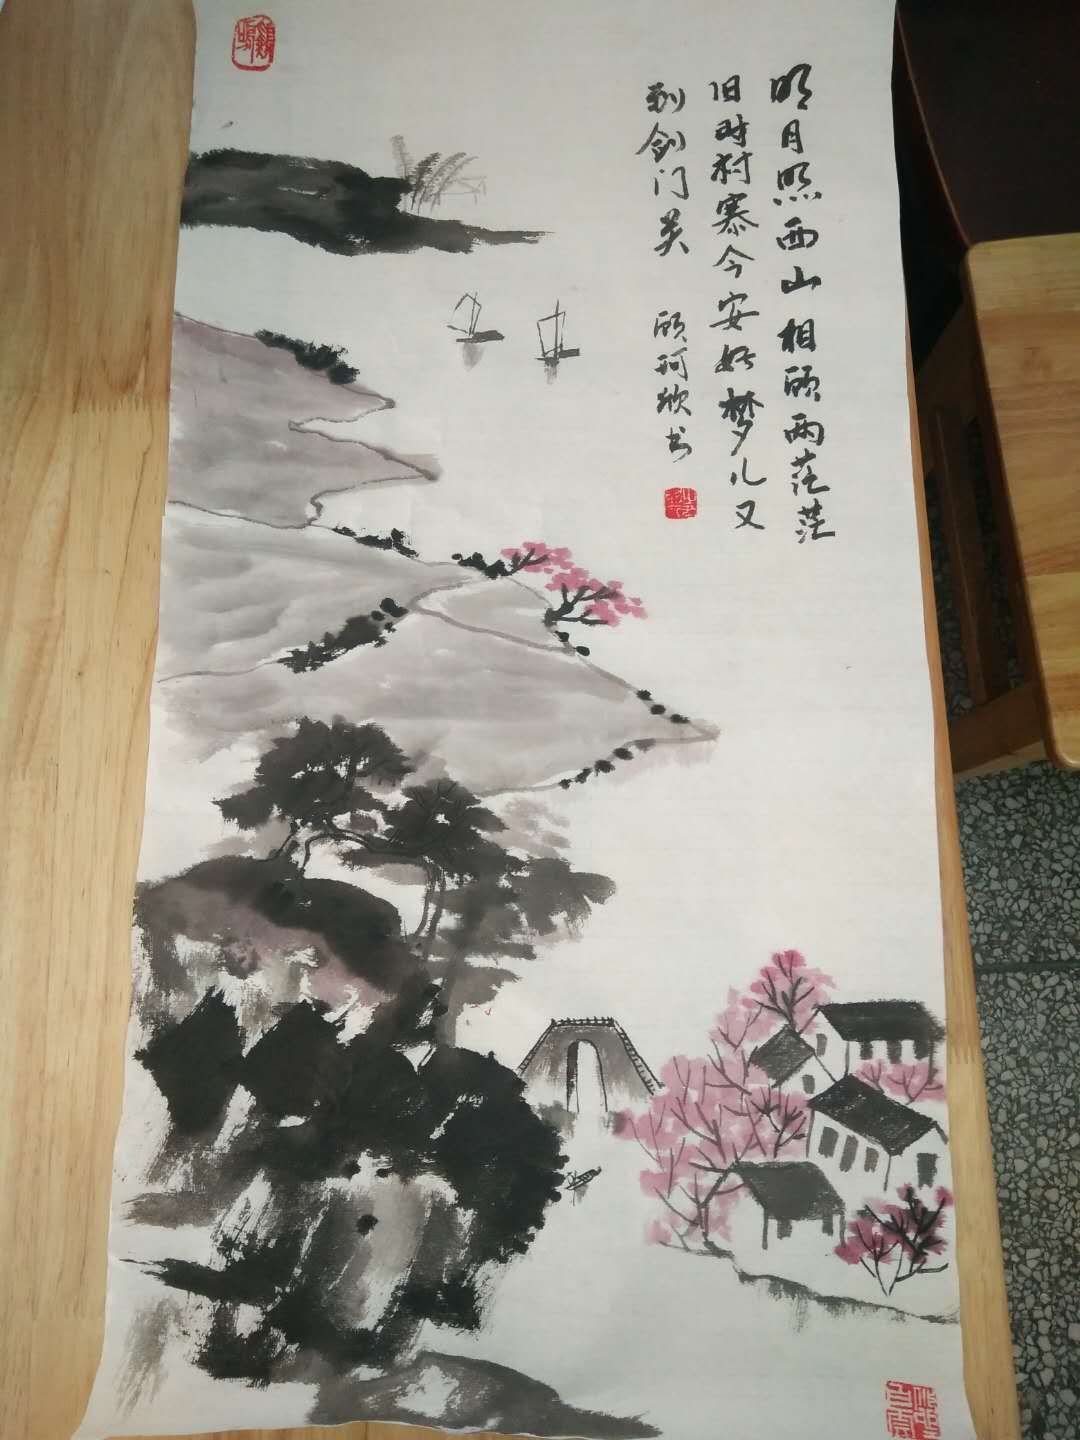 明月照西山相顾两茫茫
旧时村寨今安好梦儿又
到剑门关 顾珂欣书